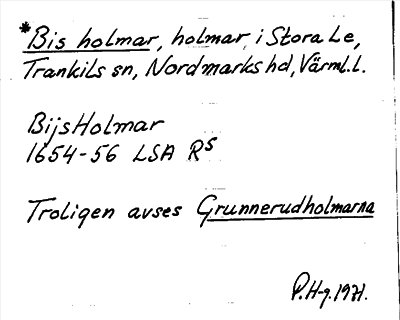 *Bis holmar, holmar, i Stora Le,
Trankils sn, Nordmarks hd, Värml.l.
BijsHolmar
1654-56 LSA Rs
Troligen avses Grunnerudholmarna
P.H-g.1971.